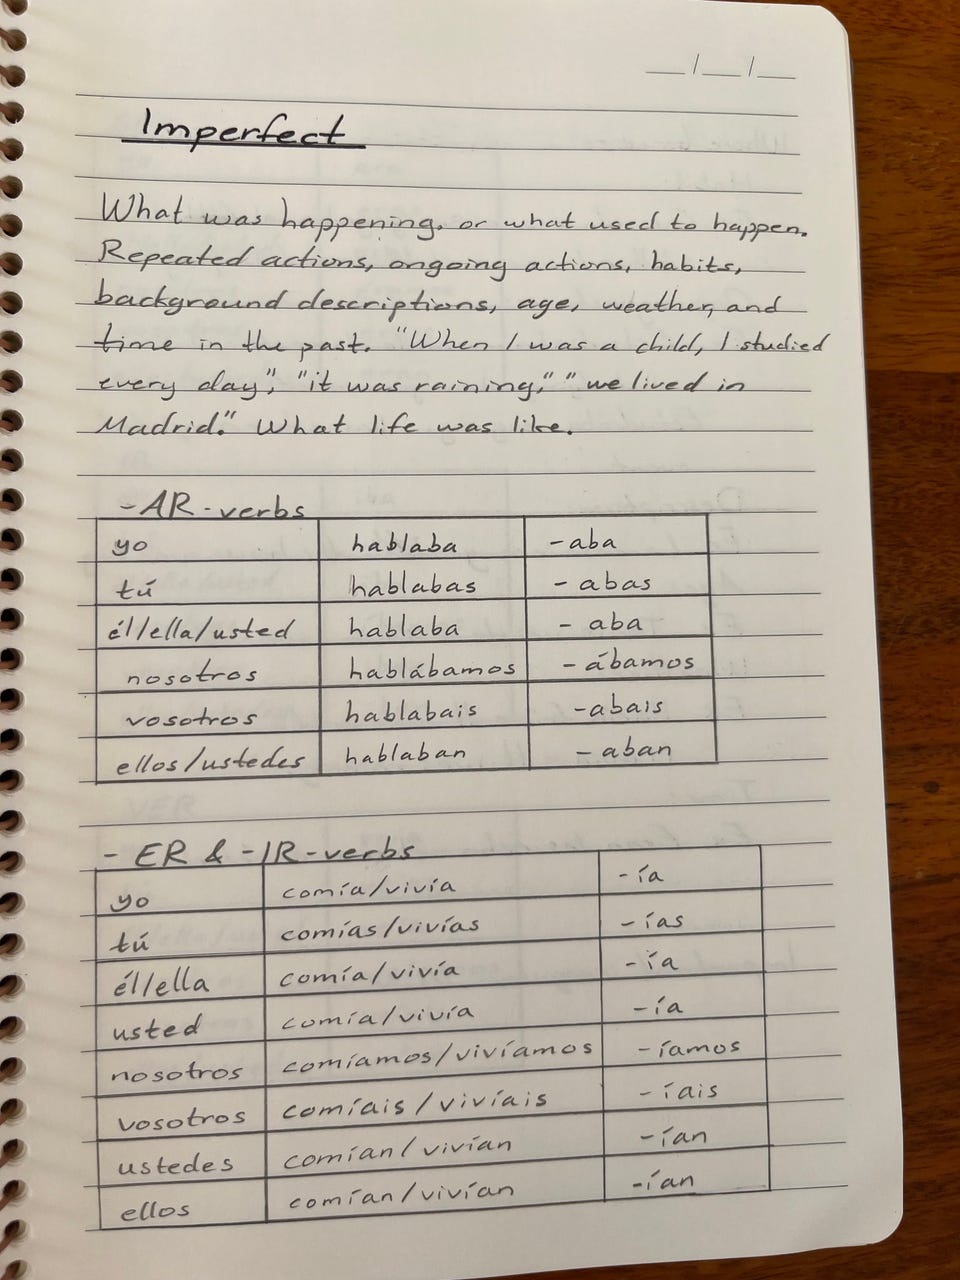 __/__/__
Imperfect
What was happening, or what used to happen.
Repeated actions, ongoing actions, habits,
background descriptions, age, weather, and
time in the past. "When I was a child, I studied
every day", "it was raining," "we lived in
Madrid." What life was like.
-AR-verbs
yo hablaba -aba
tú hablabas -abas
él/ella/usted hablaba -aba
nosotros hablábamos -ábamos
vosotros hablabais -abais
ellos/ustedes hablaban -aban
-ER & -IR-verbs
yo comía/vivía -ía
tú comías/vivías -ías
él/ella comía/vivía -ía
usted comía/vivía -ía
nosotros comíamos/vivíamos -íamos
vosotros comíais/vivíais -íais
ustedes comían/vivían -ían
ellos comían/vivían -ían